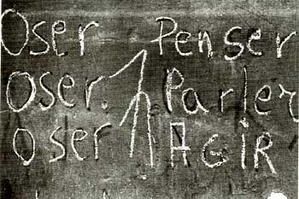 Oser Penser
Oser. Parler
Oser AGiR